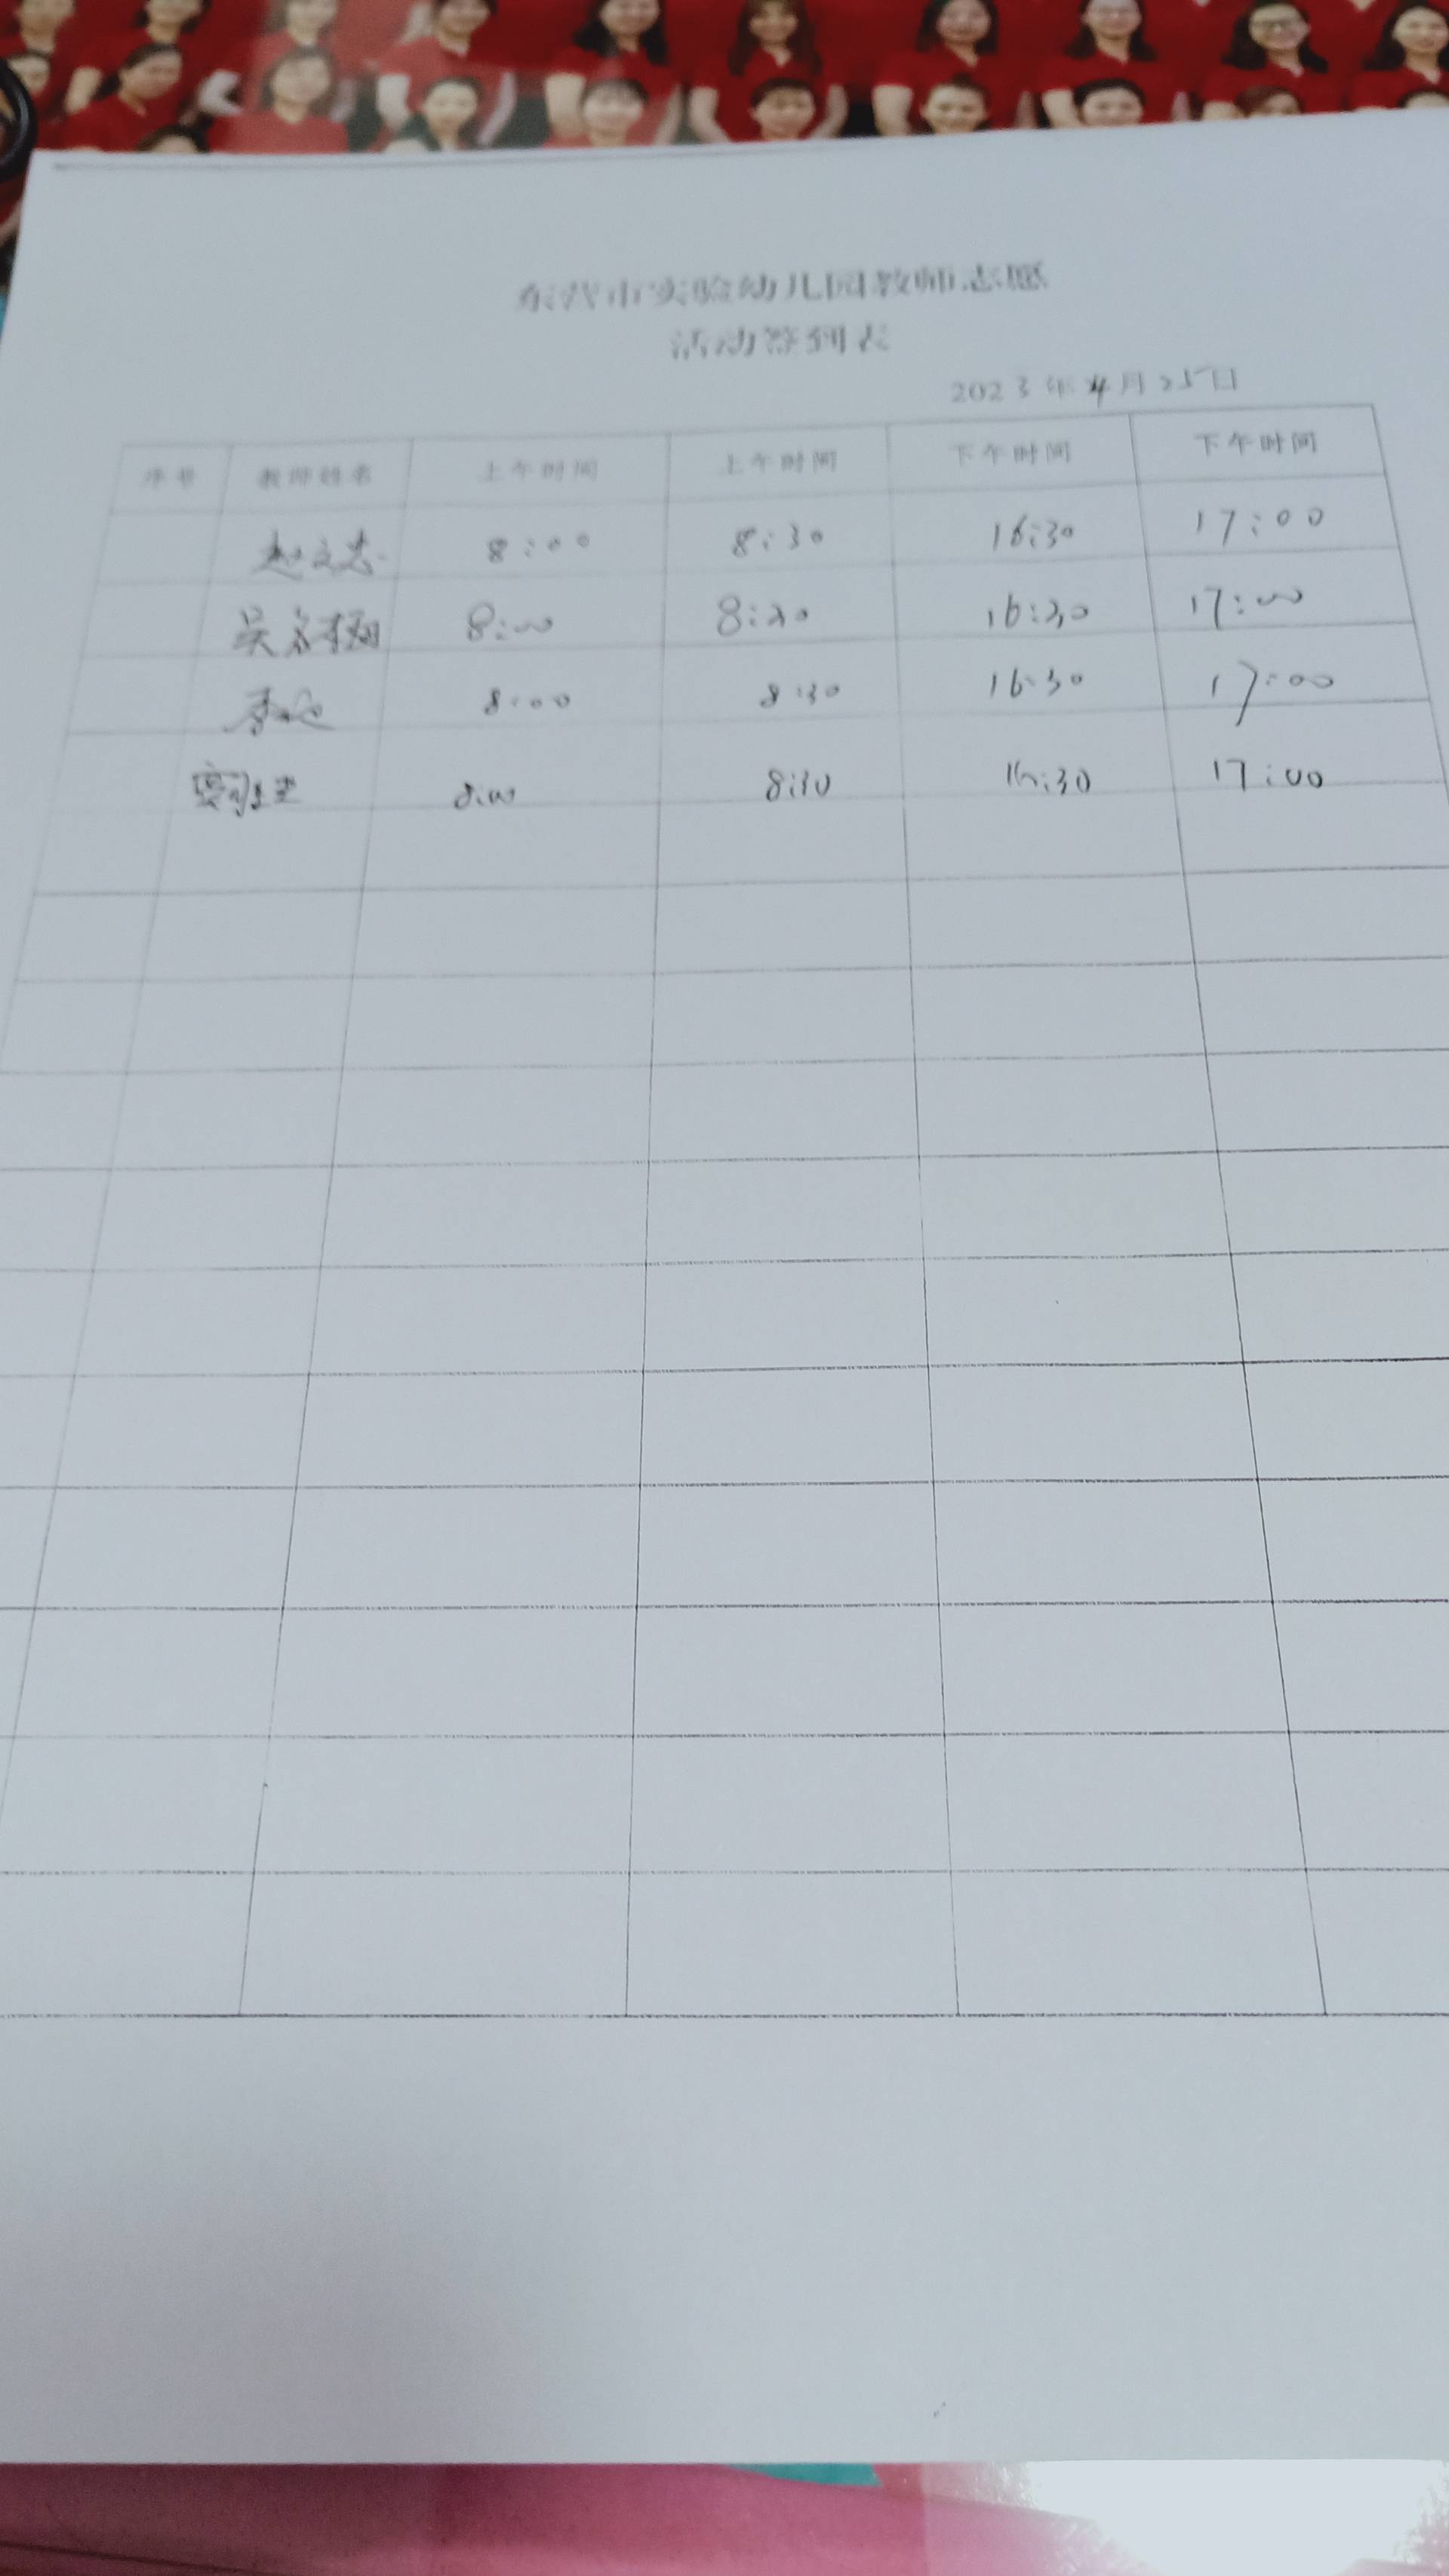 东营市实验幼儿园教师志愿
活动签到表
2023年4月25日
序号 教师姓名 上午时间 上午时间 下午时间 下午时间
8:00 8:30 16:30 17:00
吴 8:00 8:30 16:30 17:00
8:00 8:30 16:30 17:00
8:00 8:30 16:30 17:00